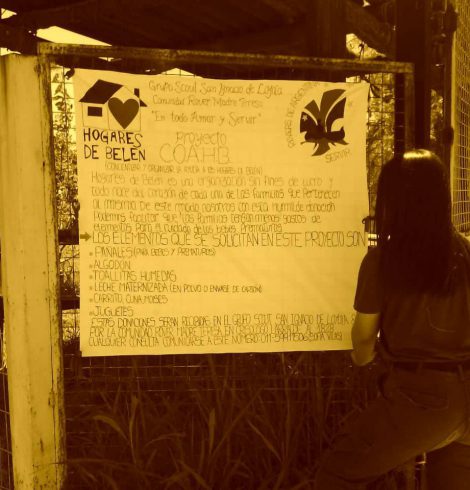 Grupo Scout San Ignacio de Loyola
Comunidad Rover Madre Teresa
"En todo Amar y Servir"
HOGARES
DE BELEN
SERVIR
Proyecto
C.O.A.H.B
(CONCIENTIZAR Y ORGANIZAR LA AYUDA A LOS HOGARES DE BELÉN)
Hogares de Belén es una organización sin fines de lucro y
todo nace del corazón de cada una de las familias que pertenecen
al mismo. De este modo nosotros con esta humilde donación
Podemos facilitar que las familias tengan menos gastos de
elementos Para el cuidado de los bebés Prematuros
LOS ELEMENTOS QUE SE SOLICITAN EN ESTE PROYECTO SON
PAÑALES (PARA BEBES Y PREMATUROS)
ALGODÓN
TOALLITAS HUMEDAS
LECHE MATERNIZADA (EN POLVO O ENVASE DE CARTÓN)
CARRITO, CUNA, MOISES
JUGUETES
ESTAS DONACIONES SERAN RECIBIDAS EN EL GRUPO SCOUT SAN IGNACIO DE LOYOLA
POR LA COMUNIDAD ROVER MADRE TERESA EN CRISOLOGO LARRALDE AL
CUALQUIER CONSULTA COMUNICARSE A ESTE NUMERO: 011